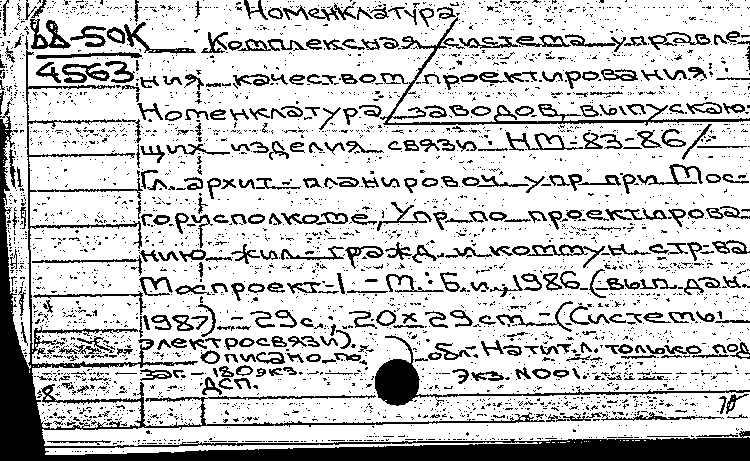 Номенклатура
88-50К Комплексная система управле-
4563 ния качеством проектирования:
Номенклатура заводов, выпускаю-
щих изделия связи: НМ-83-86/
Гл. архит.-планировоч. упр при Мос-
горисполкоме, Упр по проектирова-
нию жил.-гражд и коммун. стр-ва
Моспроект-1. -М.: Б.и., 1986 (вып. дан.
1987) -29с.; 20×29см -(Системы
электросвязи).
Описано по обл. На тит.л. только под
заг. - 180экз. Экз. №001.
ДСП.
8